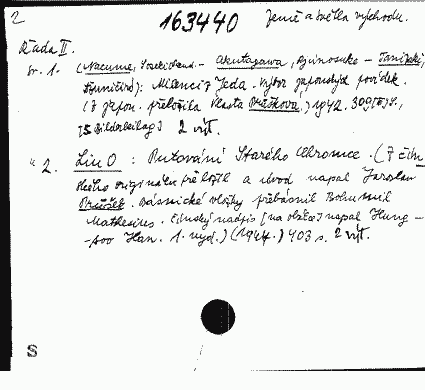 2
163440 Země a světla východu.
Řada II.
sv. 1. (Nacume, Soseki - Akutagawa, Rjúnosuke - Tanizaki,
): Milenci z Jeda. Výbor japonských povídek.
(Z japon. přeložila Vlasta Průšková.) 1942. 309 S.,
[5 Bilderbeilag] 2 výt.
" 2. Liu O: Putování Starého Chromce. (Z čín
ského originálu přeložil a úvod napsal Jaroslav
Průšek. Básnické vložky přebásnil Bohumil
Mathesius. Čínský nadpis [na obálce] napsal Hung -
-soo Han. 1. vyd.) (1947.) 403 s. 2 výt.
S